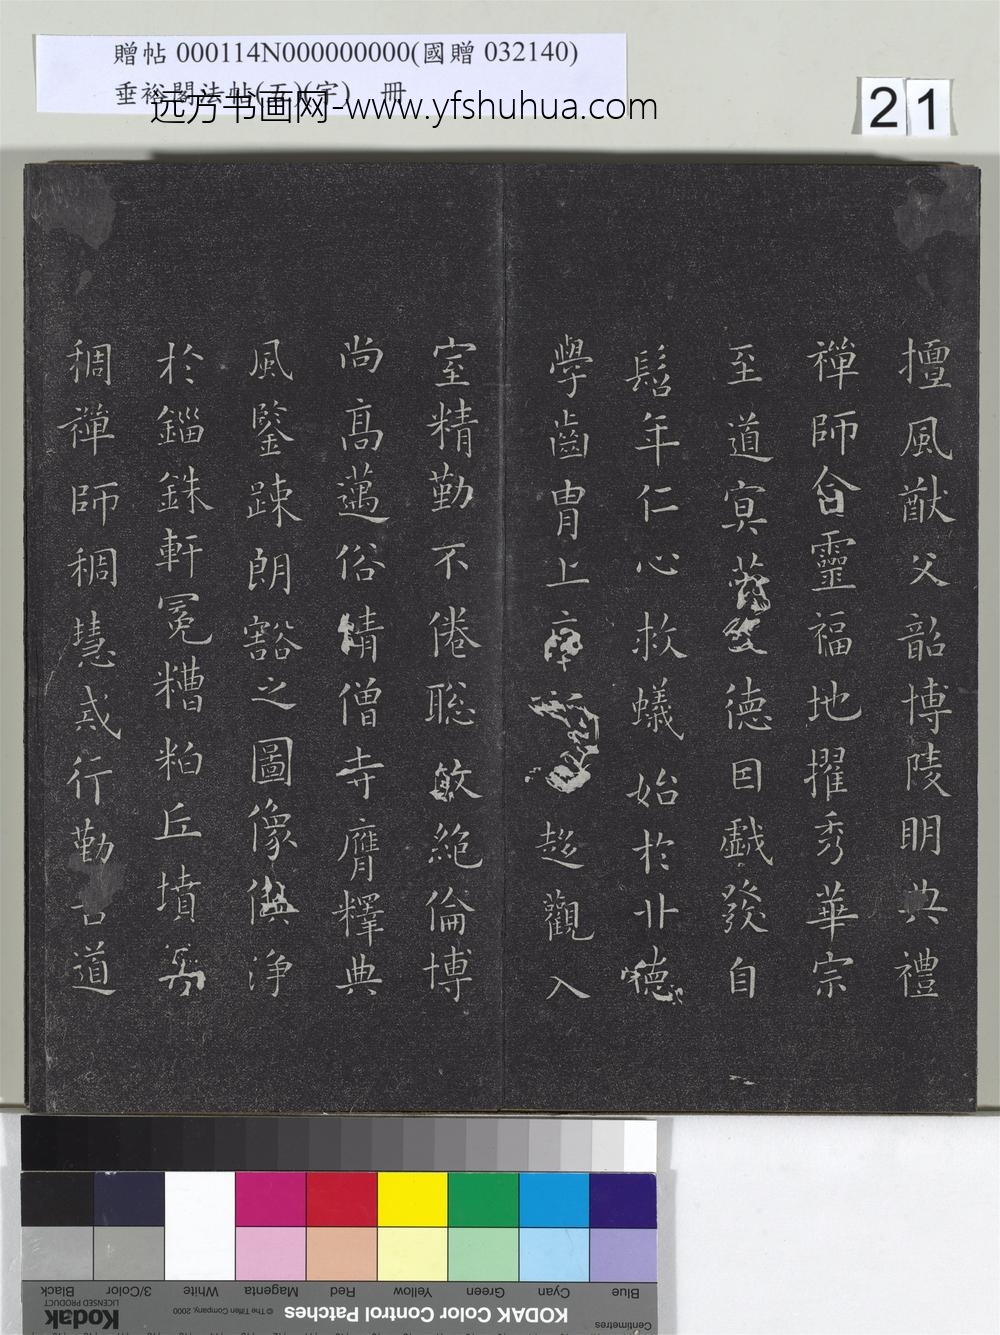 贈帖 000114N000000000(國贈 032140)
垂裕閣法帖(五)(宇) 冊
远方书画网-www.yfshuhua.com
21
擅風猷父韶博陵明典禮
禪師含靈福地擢秀華宗
至道冥符德因戲發自
髫年仁心救蟻始於廿德
學齒胄上庠趍觀入
室精勤不倦聡敏絶倫博
尚高邁俗晴僧寺膺釋典
風鑒踈朗豁之圖像俱浄
於錙銖軒冕糟粕丘墳
稠禪師稠慧戒行勤苦道
Blue
Cyan
Green
Yellow
Red
Magenta
White
3/Color
Black
Centimetres
KODAK Color Control Patches
© The Tiffen Company, 2000
Kodak
LICENSED PRODUCT